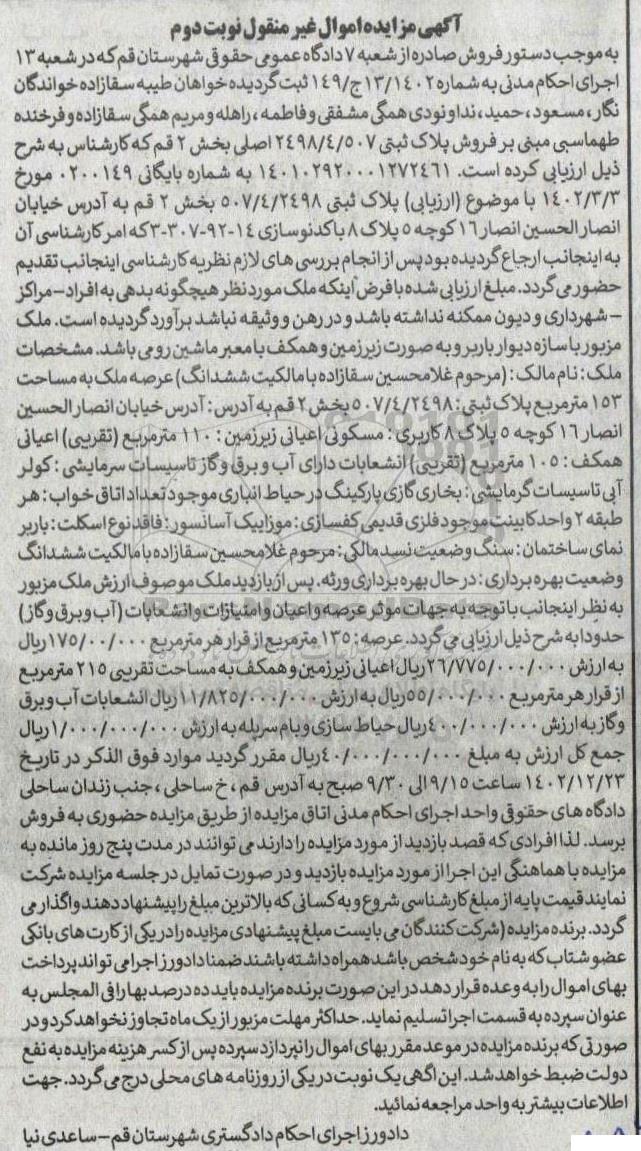 آگهی مزایده اموال غیر منقول نوبت دوم
به موجب دستور فروش صادره از شعبه ۷ دادگاه عمومی حقوقی شهرستان قم که در شعبه ۱۳
اجرای احکام مدنی به شماره ۱۴۹/ج۱۳/۱۴۰۲ ثبت گردیده خواهان طیبه سقازاده خواندگان
نگار، مسعود، حمید، ندا و نودی همگی مشفقی و فاطمه، راهله و مریم همگی سقازاده و فرخنده
طهماسبی مبنی بر فروش پلاک ثبتی ۲۴۹۸/۴/۵۰۷ اصلی بخش ۲ قم که کارشناس به شرح
ذیل ارزیابی کرده است. ۱۴۰۱۰۲۹۲۰۰۰۱۲۷۲۴۶۱ به شماره بایگانی ۰۲۰۰۱۴۹ مورخ
۱۴۰۲/۳/۳ با موضوع (ارزیابی) پلاک ثبتی ۵۰۷/۴/۲۴۹۸ بخش ۲ قم به آدرس خیابان
انصار الحسین انصار ۱۶ کوچه ۵ پلاک ۸ با کد نوسازی ۱۴-۹۲-۳۰۷-۳ که امر کارشناسی آن
به اینجانب ارجاع گردیده بود پس از انجام بررسی های لازم نظریه کارشناسی اینجانب تقدیم
حضور می گردد. مبلغ ارزیابی شده با فرض اینکه ملک مورد نظر هیچگونه بدهی به افراد-مراکز
- شهرداری و دیون ممکنه نداشته باشد و در رهن و وثیقه نباشد برآورد گردیده است. ملک
مزبور با سازه دیوار باربر و به صورت زیرزمین و همکف با معبر ماشین رو می باشد. مشخصات
ملک: نام مالک: (مرحوم غلامحسین سقازاده با مالکیت ششدانگ) عرصه ملک به مساحت
۱۵۳ مترمربع پلاک ثبتی: ۵۰۷/۴/۲۴۹۸ بخش ۲ قم به آدرس: آدرس خیابان انصار الحسین
انصار ۱۶ کوچه ۵ پلاک ۸ کاربری: مسکونی اعیانی زیرزمین: ۱۱۰ مترمربع (تقریبی) اعیانی
همکف: ۱۰۵ مترمربع (تقریبی) انشعابات دارای آب و برق و گاز تاسیسات سرمایشی: کولر
آبی تاسیسات گرمایشی: بخاری گازی پارکینگ در حیاط انباری موجود تعداد اتاق خواب: هر
طبقه ۲ واحد کابینت موجود فلزی قدیمی کفسازی: موزاییک آسانسور: فاقد نوع اسکلت: باربر
نمای ساختمان: سنگ وضعیت نسد مالکی: مرحوم غلامحسین سقازاده با مالکیت ششدانگ
وضعیت بهره برداری: در حال بهره برداری ورثه. پس از بازدید ملک موصوف ارزش ملک مزبور
به نظر اینجانب با توجه به جهات موثر عرصه و اعیان و امتیازات و انشعابات (آب و برق و گاز)
حدودا به شرح ذیل ارزیابی می گردد. عرصه: ۱۳۵ مترمربع از قرار هر مترمربع ۱۷۵/۰۰/۰۰۰ ریال
به ارزش ۲۶/۷۷۵/۰۰۰/۰۰۰ ریال اعیانی زیرزمین و همکف به مساحت تقریبی ۲۱۵ مترمربع
از قرار هر مترمربع ۵۵/۰۰۰/۰۰۰ ریال به ارزش ۱۱/۸۲۵/۰۰۰/۰۰۰ ریال انشعابات آب و برق
و گاز به ارزش ۴۰۰/۰۰۰/۰۰۰ ریال حیاط سازی و بام سرپله به ارزش ۱/۰۰۰/۰۰۰/۰۰۰ ریال
جمع کل ارزش به مبلغ ۴۰/۰۰۰/۰۰۰/۰۰۰ ریال مقرر گردید موارد فوق الذکر در تاریخ
۱۴۰۲/۱۲/۲۳ ساعت ۹/۱۵ الی ۹/۳۰ صبح به آدرس قم، خ ساحلی، جنب زندان ساحلی
دادگاه های حقوقی واحد اجرای احکام مدنی اتاق مزایده از طریق مزایده حضوری به فروش
برسد. لذا افرادی که قصد بازدید از مورد مزایده را دارند می توانند در مدت پنج روز مانده به
مزایده با هماهنگی این اجرا از مورد مزایده بازدید و در صورت تمایل در جلسه مزایده شرکت
نمایند قیمت پایه از مبلغ کارشناسی شروع و به کسانی که بالاترین مبلغ را پیشنهاد دهند واگذار می
گردد. برنده مزایده (شرکت کنندگان می بایست مبلغ پیشنهادی مزایده را در یکی از کارت های بانکی
عضو شتاب که به نام خود شخص باشد همراه داشته باشند ضمنا دادورز اجرا می تواند پرداخت
بهای اموال را به وعده قرار دهد در این صورت برنده مزایده باید ده درصد بها را فی المجلس به
عنوان سپرده به قسمت اجرا تسلیم نماید. حداکثر مهلت مزبور از یک ماه تجاوز نخواهد کرد و در
صورتی که برنده مزایده در موعد مقرر بهای اموال را نپردازد سپرده پس از کسر هزینه مزایده به نفع
دولت ضبط خواهد شد. این اگهی یک نوبت در یکی از روزنامه های محلی درج می گردد. جهت
اطلاعات بیشتر به واحد مراجعه نمائید.
دادورز اجرای احکام دادگستری شهرستان قم-ساعدی نیا